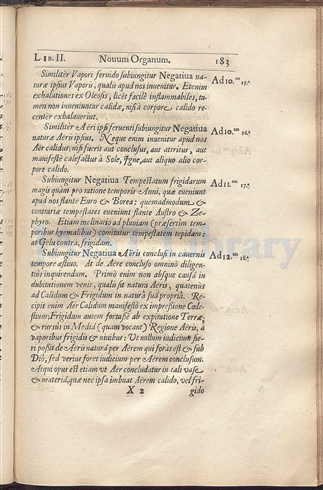 LIB. II. Novum Organum. 183
Similiter Vapori feruido subiungitur Negatiua na-
turæ ipsius Vaporis, qualis apud nos inuenitur. Etenim
exhalationes ex Oleosis, licèt facilè inflammabiles, ta-
men non inueniuntur calidæ, nisi à corpore calido re-
center exhalauerint.
Ad 10.m 15.a
Similiter Aeri ipsi feruenti subiungitur Negatiua
naturæ Aeris ipsius. Neque enim inuenitur apud nos
Aer calidus; nisi fuerit aut conclusus, aut attritus, aut
manifestè calefactus à Sole, Igne, aut aliquo alio cor-
pore calido.
Ad 10.m 16.a
Subiungitur Negatiua Tempestatum frigidarum
magis quàm pro ratione temporis Anni, quæ eueniunt
apud nos flante Euro & Borea: quemadmodum &
contrariæ tempestates eueniunt flante Austro & Ze-
phyro. Etiam inclinatio ad pluuiam (præsertim tem-
poribus hyemalibus) comitatur tempestatem tepidam;
at Gelu contrà, frigidam.
Ad 11.m 17.a
Subiungitur Negatiua Aëris conclusi in cauernis
tempore æstiuo. At de Aëre concluso omninò diligen-
tiùs inquirendum. Primò enim non absque causâ in
dubitationem venit, qualis sit natura Aëris, quatenùs
ad Calidum & Frigidum in naturâ suâ propriâ. Re-
cipit enim Aër Calidum manifestò ex impressione Cæ-
lestium; Frigidum autem fortasse ab expiratione Terræ;
& rursùs in Mediâ (quam vocant) Regione Aëris, à
vaporibus frigidis & niuibus: Vt nullum iudicium fie-
ri possit de Aëris naturâ per Aërem qui foràs est & sub
Dio, sed veriùs foret iudicium per Aërem conclusum.
Atqui opus est etiam vt Aër concludatur in tali vase
& materiâ, quæ nec ipsa imbuat Aërem calido, vel fri-
Ad 12.m 18.a
X 2 gido
Library